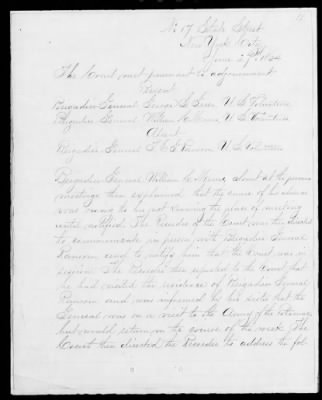 No 17 State Street
New York City
June 27th 1864
The Court met pursuant to adjournment
Present
Brigadier General George S. Greene U.S. Volunteers
Brigadier General William H. Morris U.S. Volunteers
Absent
Brigadier General T. E. G. Ransom U.S. Volunteers
Brigadier General William H. Morris, absent at the previous
meetings then explained that the cause of his absence
was owing to his not knowing the place of meeting
until notified. The Recorder of the Court was then directed
to communicate in person with Brigadier General
Ransom and to notify him that the Court was in
session. The Recorder then reported to the Court that
he had visited the residence of Brigadier General
Ransom and was informed by his sister that the
General was on a visit to the Army of the Potomac,
but would return in the course of the week. The
Court then directed the Recorder to address the fol